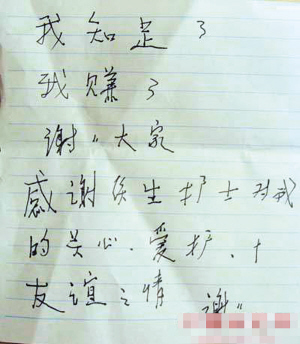 我知足了
我赚了
谢〃大家
感谢医生护士对我
的关心.爱护.十
友谊之情
谢〃